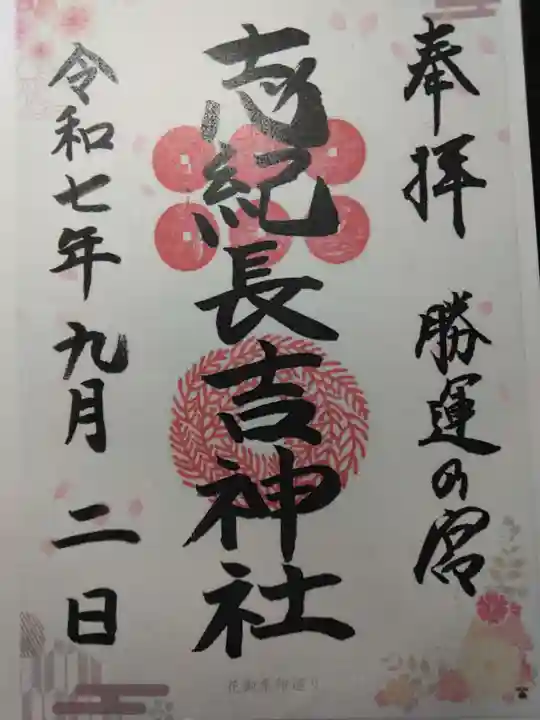 奉拝 勝運の宮
志紀長吉神社
令和七年九月二日
花御朱印巡り